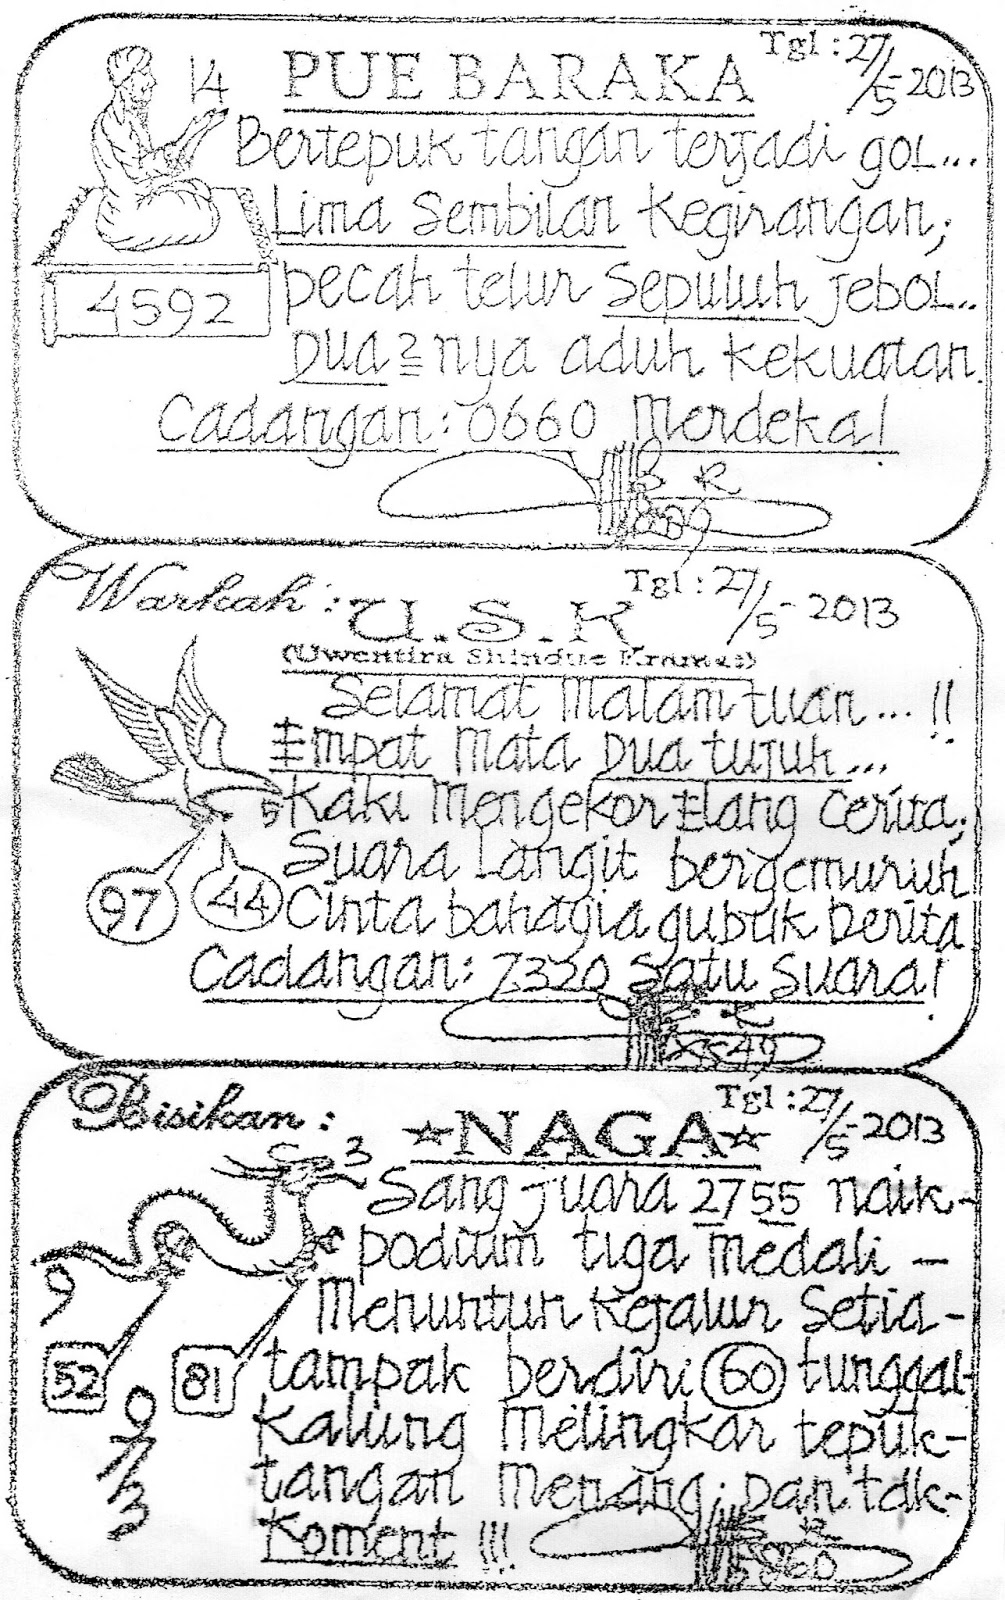 PUE BARAKA
Tgl : 27/5-2013
14
Bertepuk tangan terjadi gol...
Lima Sembilan kegirangan;
4592
pecah telur Sepuluh jebol..
Dua 2 nya aduh kekuatan
Cadangan : 0660 Merdeka!
B R
Warkah :
U.S.K
Tgl : 27/5-2013
(Uwentira Shindue Kramas)
Selamat Malam tuan...!!
Empat Mata Dua tujuh...
5
Kaki Mengekor Elang Cerita;
Suara Langit bergemuruh
97
44
Cinta bahagia gubuk Derita
Cadangan: 7320 Satu Suara!
R
Bisikan :
☆NAGA☆
Tgl : 27/5-2013
3
Sang juara 2755 naik-
podium tiga Medali -
9
Menuntun Kejalur Setia-
52
81
tampak berdiri 60 tunggal-
Kalung Melingkar tepuk-
tangan Menang; Dan tdk-
Koment !!!